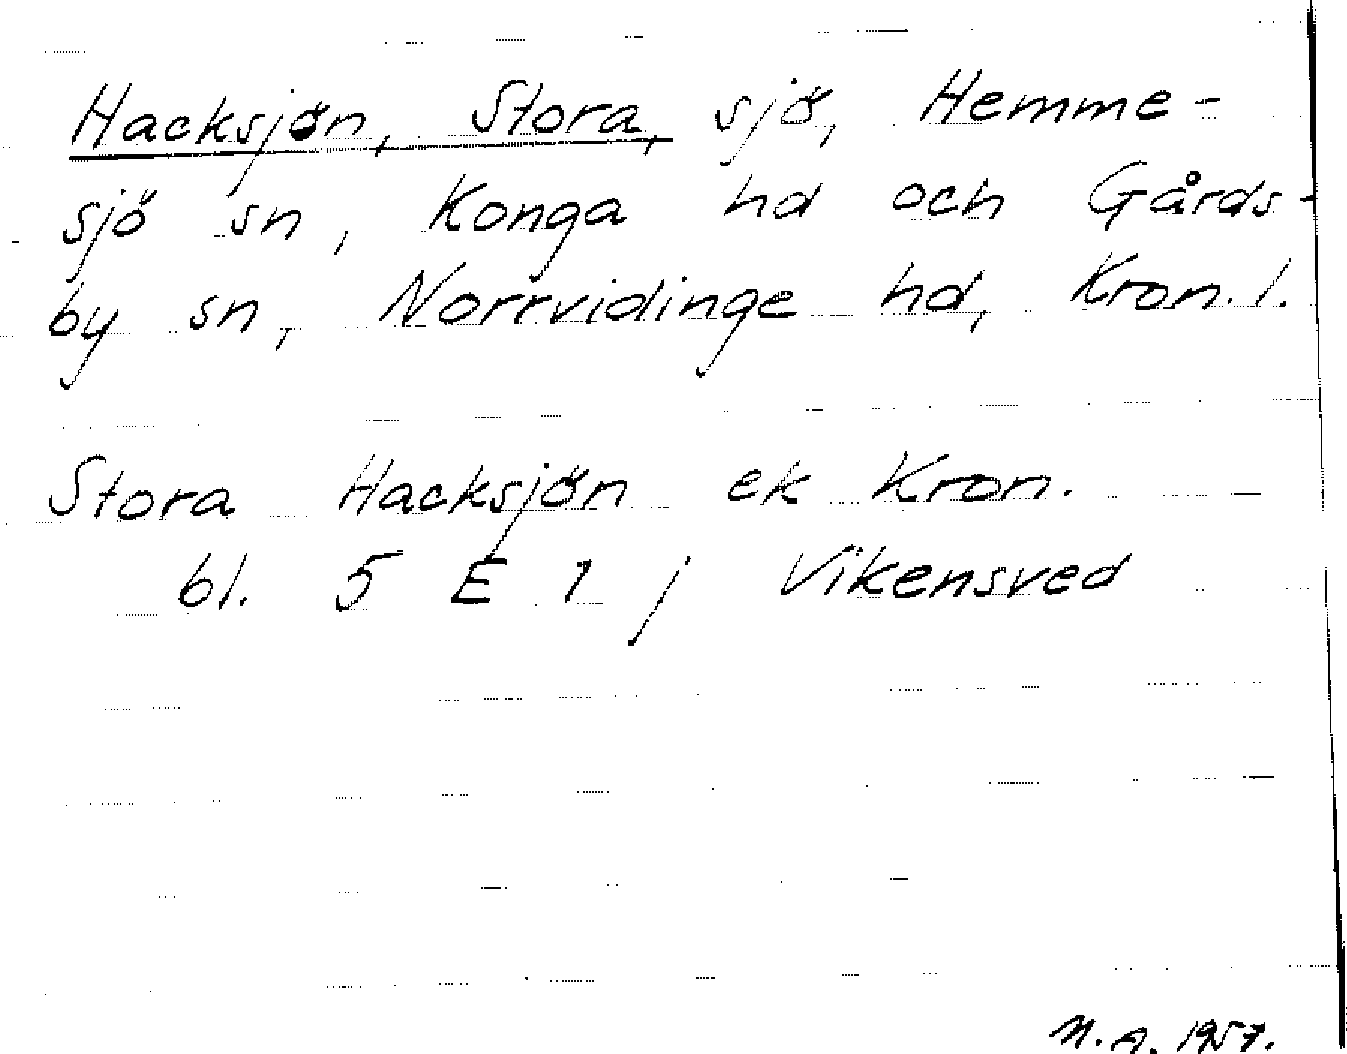 Hacksjön, Stora, sjö, Hemme-
sjö sn, Konga hd och Gårds-
by sn, Norrvidinge hd, Kron. l.
Stora Hacksjön ek Kron.
bl. 5 E 1 j Vikensved
N. A. 1957.